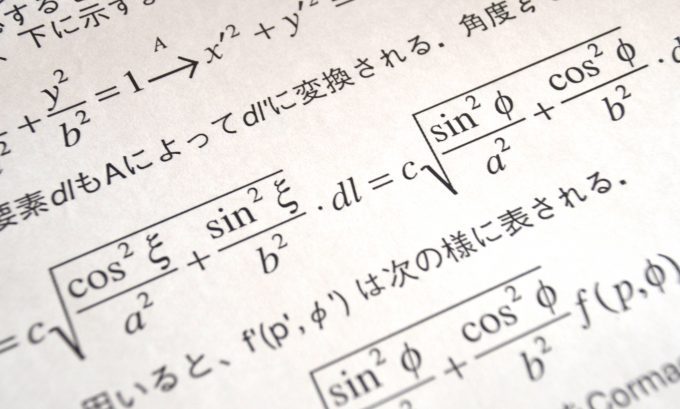 下に示す
+ y²/b² = 1 —A→ x'² + y'² =
要素dlもAによってdl'に変換される．角度ξ
= c√(cos² ξ/a² + sin² ξ/b²) · dl = c√(sin² φ/a² + cos² φ/b²) · d
用いると、f'(p', φ') は次の様に表される．
√(sin² φ/ + cos² φ/b²) f(p,φ)
Cormac